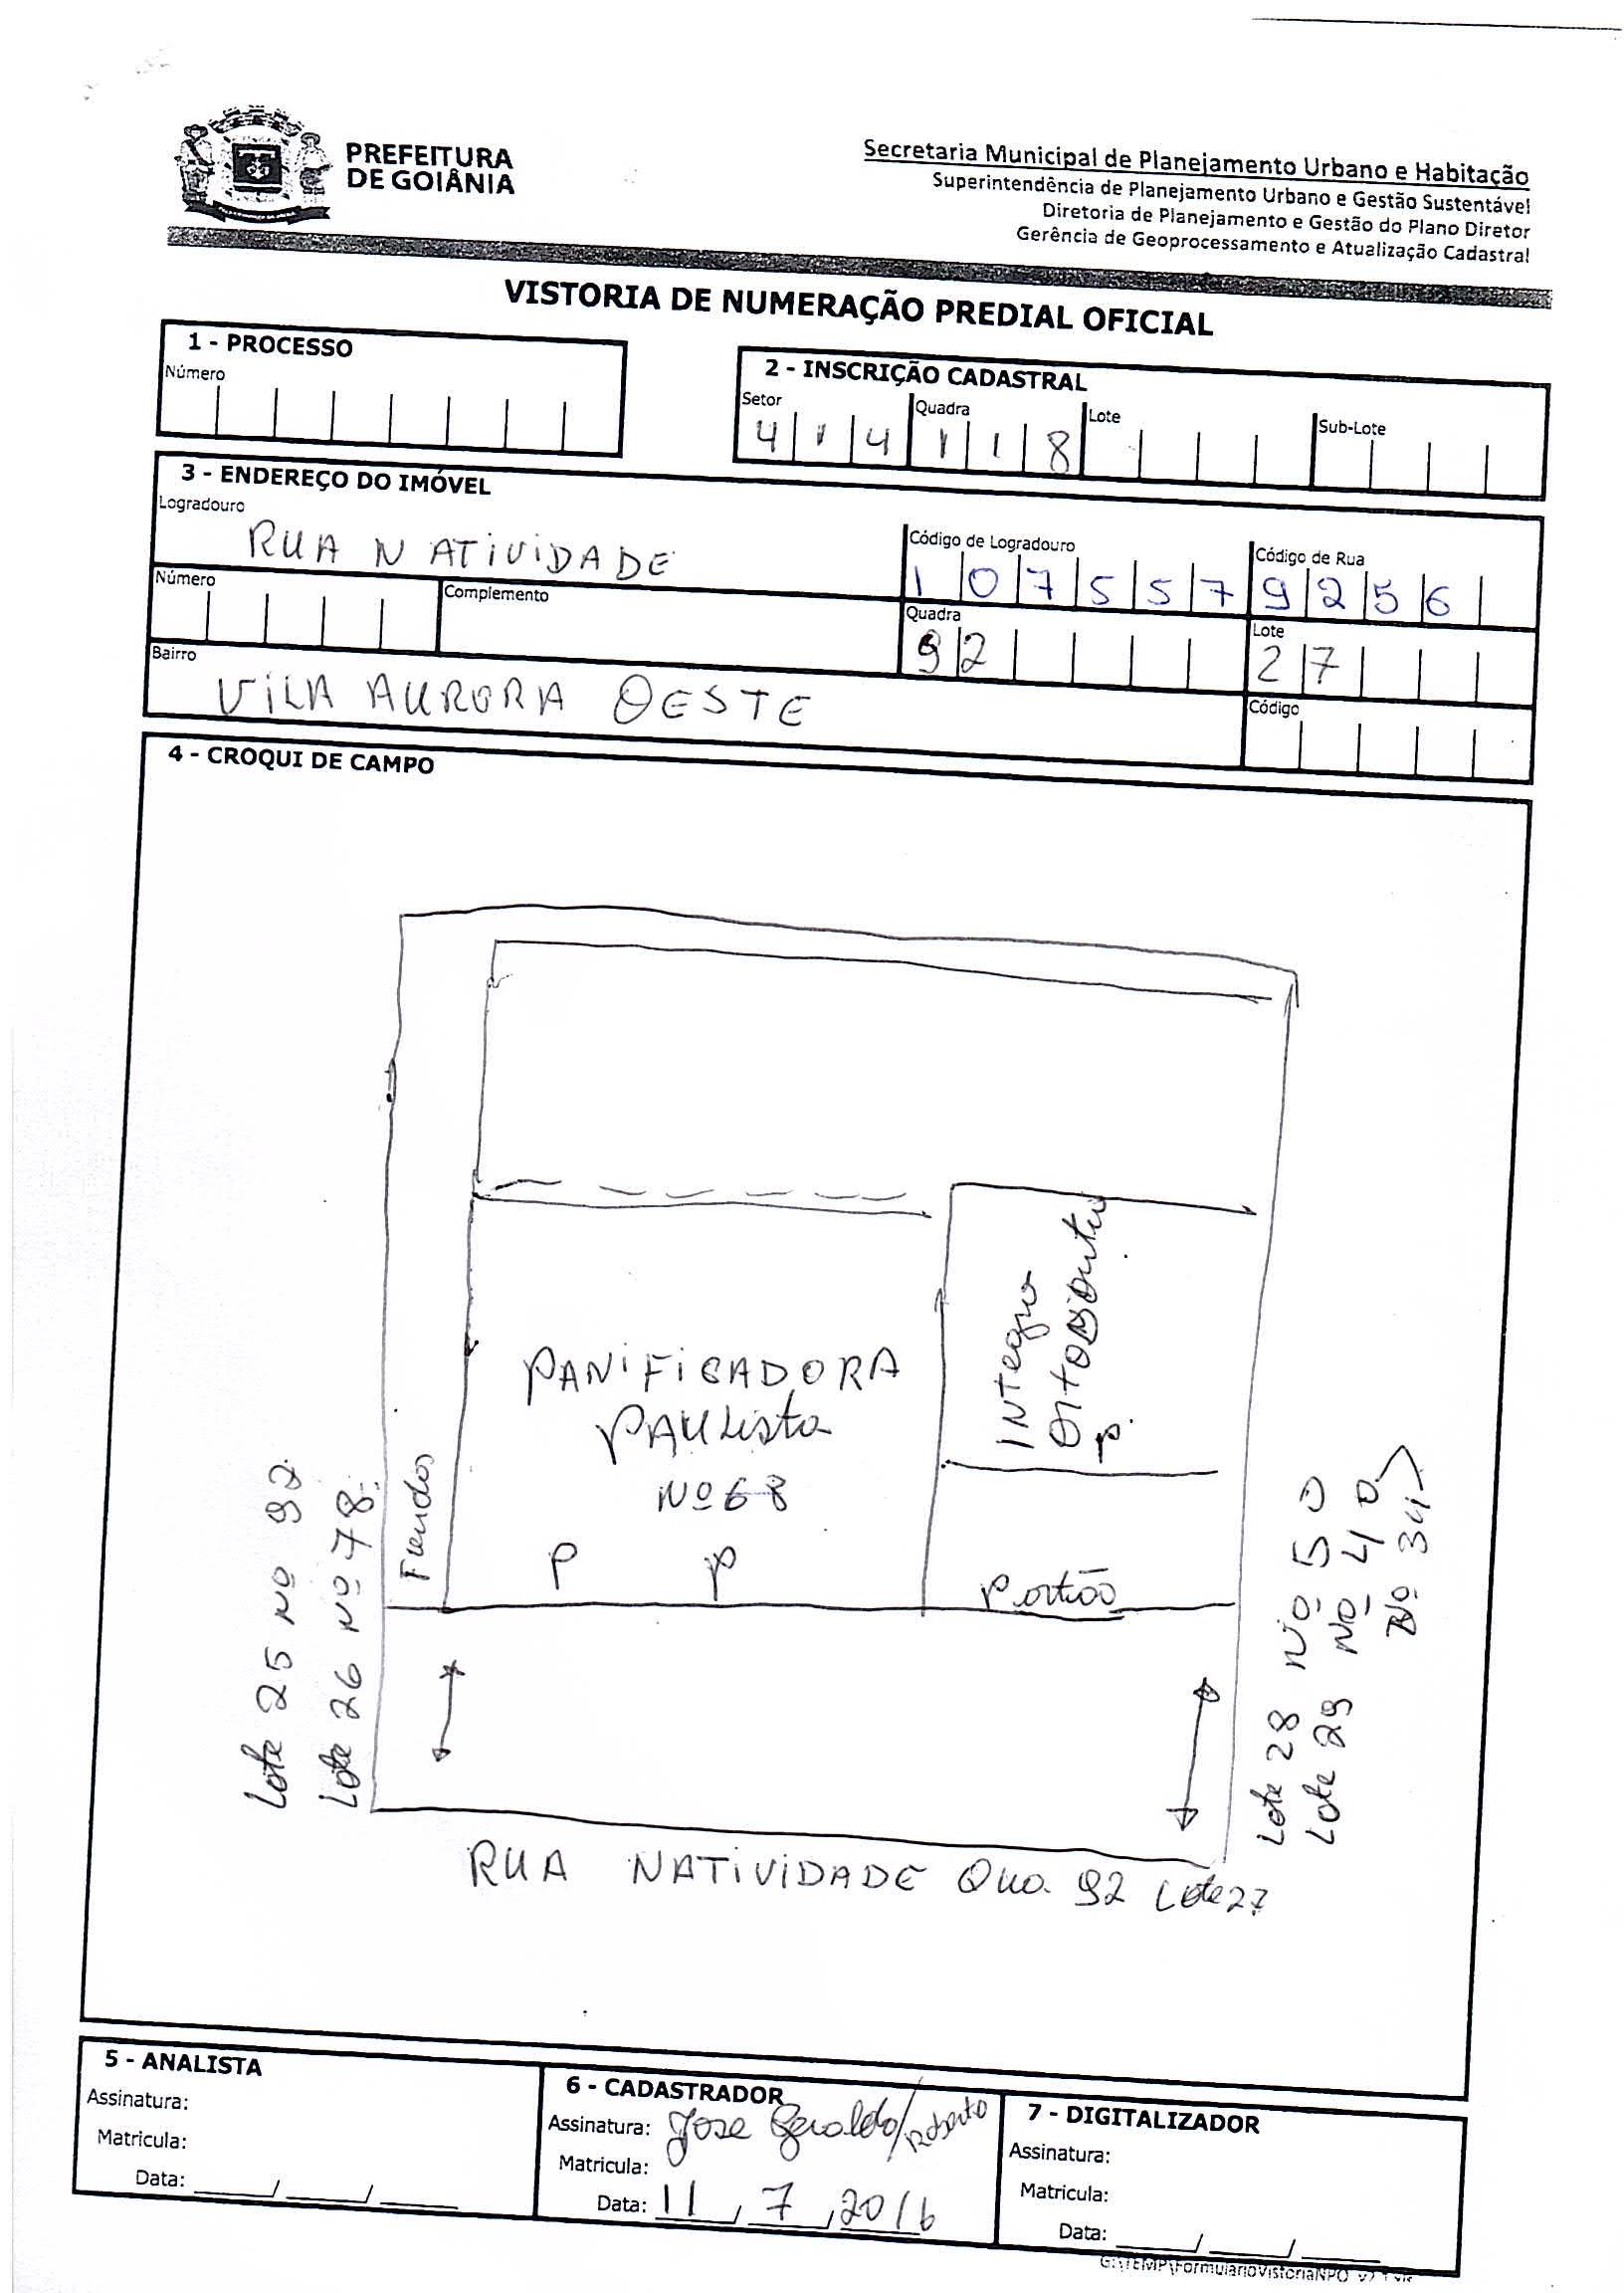 PREFEITURA
DE GOIÂNIA
Secretaria Municipal de Planejamento Urbano e Habitação
Superintendência de Planejamento Urbano e Gestão Sustentável
Diretoria de Planejamento e Gestão do Plano Diretor
Gerência de Geoprocessamento e Atualização Cadastral
VISTORIA DE NUMERAÇÃO PREDIAL OFICIAL
1 - PROCESSO
Número
2 - INSCRIÇÃO CADASTRAL
Setor Quadra Lote Sub-Lote
4 1 4 1 1 8
3 - ENDEREÇO DO IMÓVEL
Logradouro Código de Logradouro Código de Rua
RUA NATIVIDADE 1 0 7 5 5 7 9 2 5 6
Número Complemento Quadra Lote
92 27
Bairro Código
VILA AURORA OESTE
4 - CROQUI DE CAMPO
PANIFICADORA
PAULista
Nº 68
P P
INTegro
P.
Portão
Fundos
Lote 25 Nº 92
Lote 26 Nº 78
Lote 28 Nº 50
Lote 29 Nº 40
Nº 34
RUA NATIVIDADE Qua. 92 Lote 27
5 - ANALISTA
Assinatura:
Matricula:
Data: ____/____/____
6 - CADASTRADOR
Assinatura: Jose Geraldo/Roberto
Matricula:
Data: 11/7/2016
7 - DIGITALIZADOR
Assinatura:
Matricula:
Data: ____/____/____